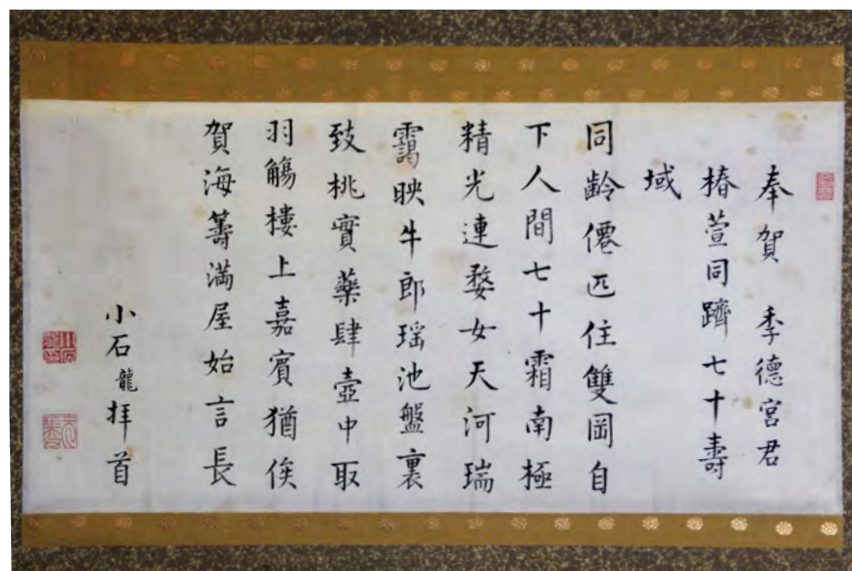 奉賀　季德宮君
椿萱同躋七十壽
域
同齡僊匹住雙岡自
下人間七十霜南極
精光連婺女天河瑞
靄映牛郎瑶池盤裏
致桃實藥肆壺中取
羽觴樓上嘉賓猶俟
賀海籌滿屋始言長
小石龍拜首